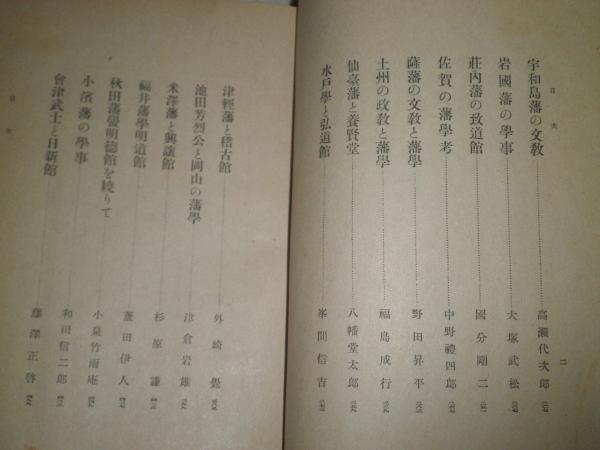 目次
二
宇和島藩の文教 高瀨代次郎
岩國藩の學事 大塚武松
莊內藩の致道館 國分剛二
佐賀の藩學考 中野禮四郎
薩藩の文教と藩學 野田昇平
土州の政教と藩學 福島成行
仙臺藩と養賢堂 八幡堂太郎
水戶學と弘道館 峯間信吉
津輕藩と稽古館 外崎覺
池田芳烈公と岡山の藩學 津倉岩雄
米澤藩と興讓館 杉原謙
福井藩學明道館 蘆田伊人
秋田藩黌明德館を繞りて 小泉竹雨庵
小濱藩の學事 和田信二郎
會津武士と日新館 藤澤正啓
目次